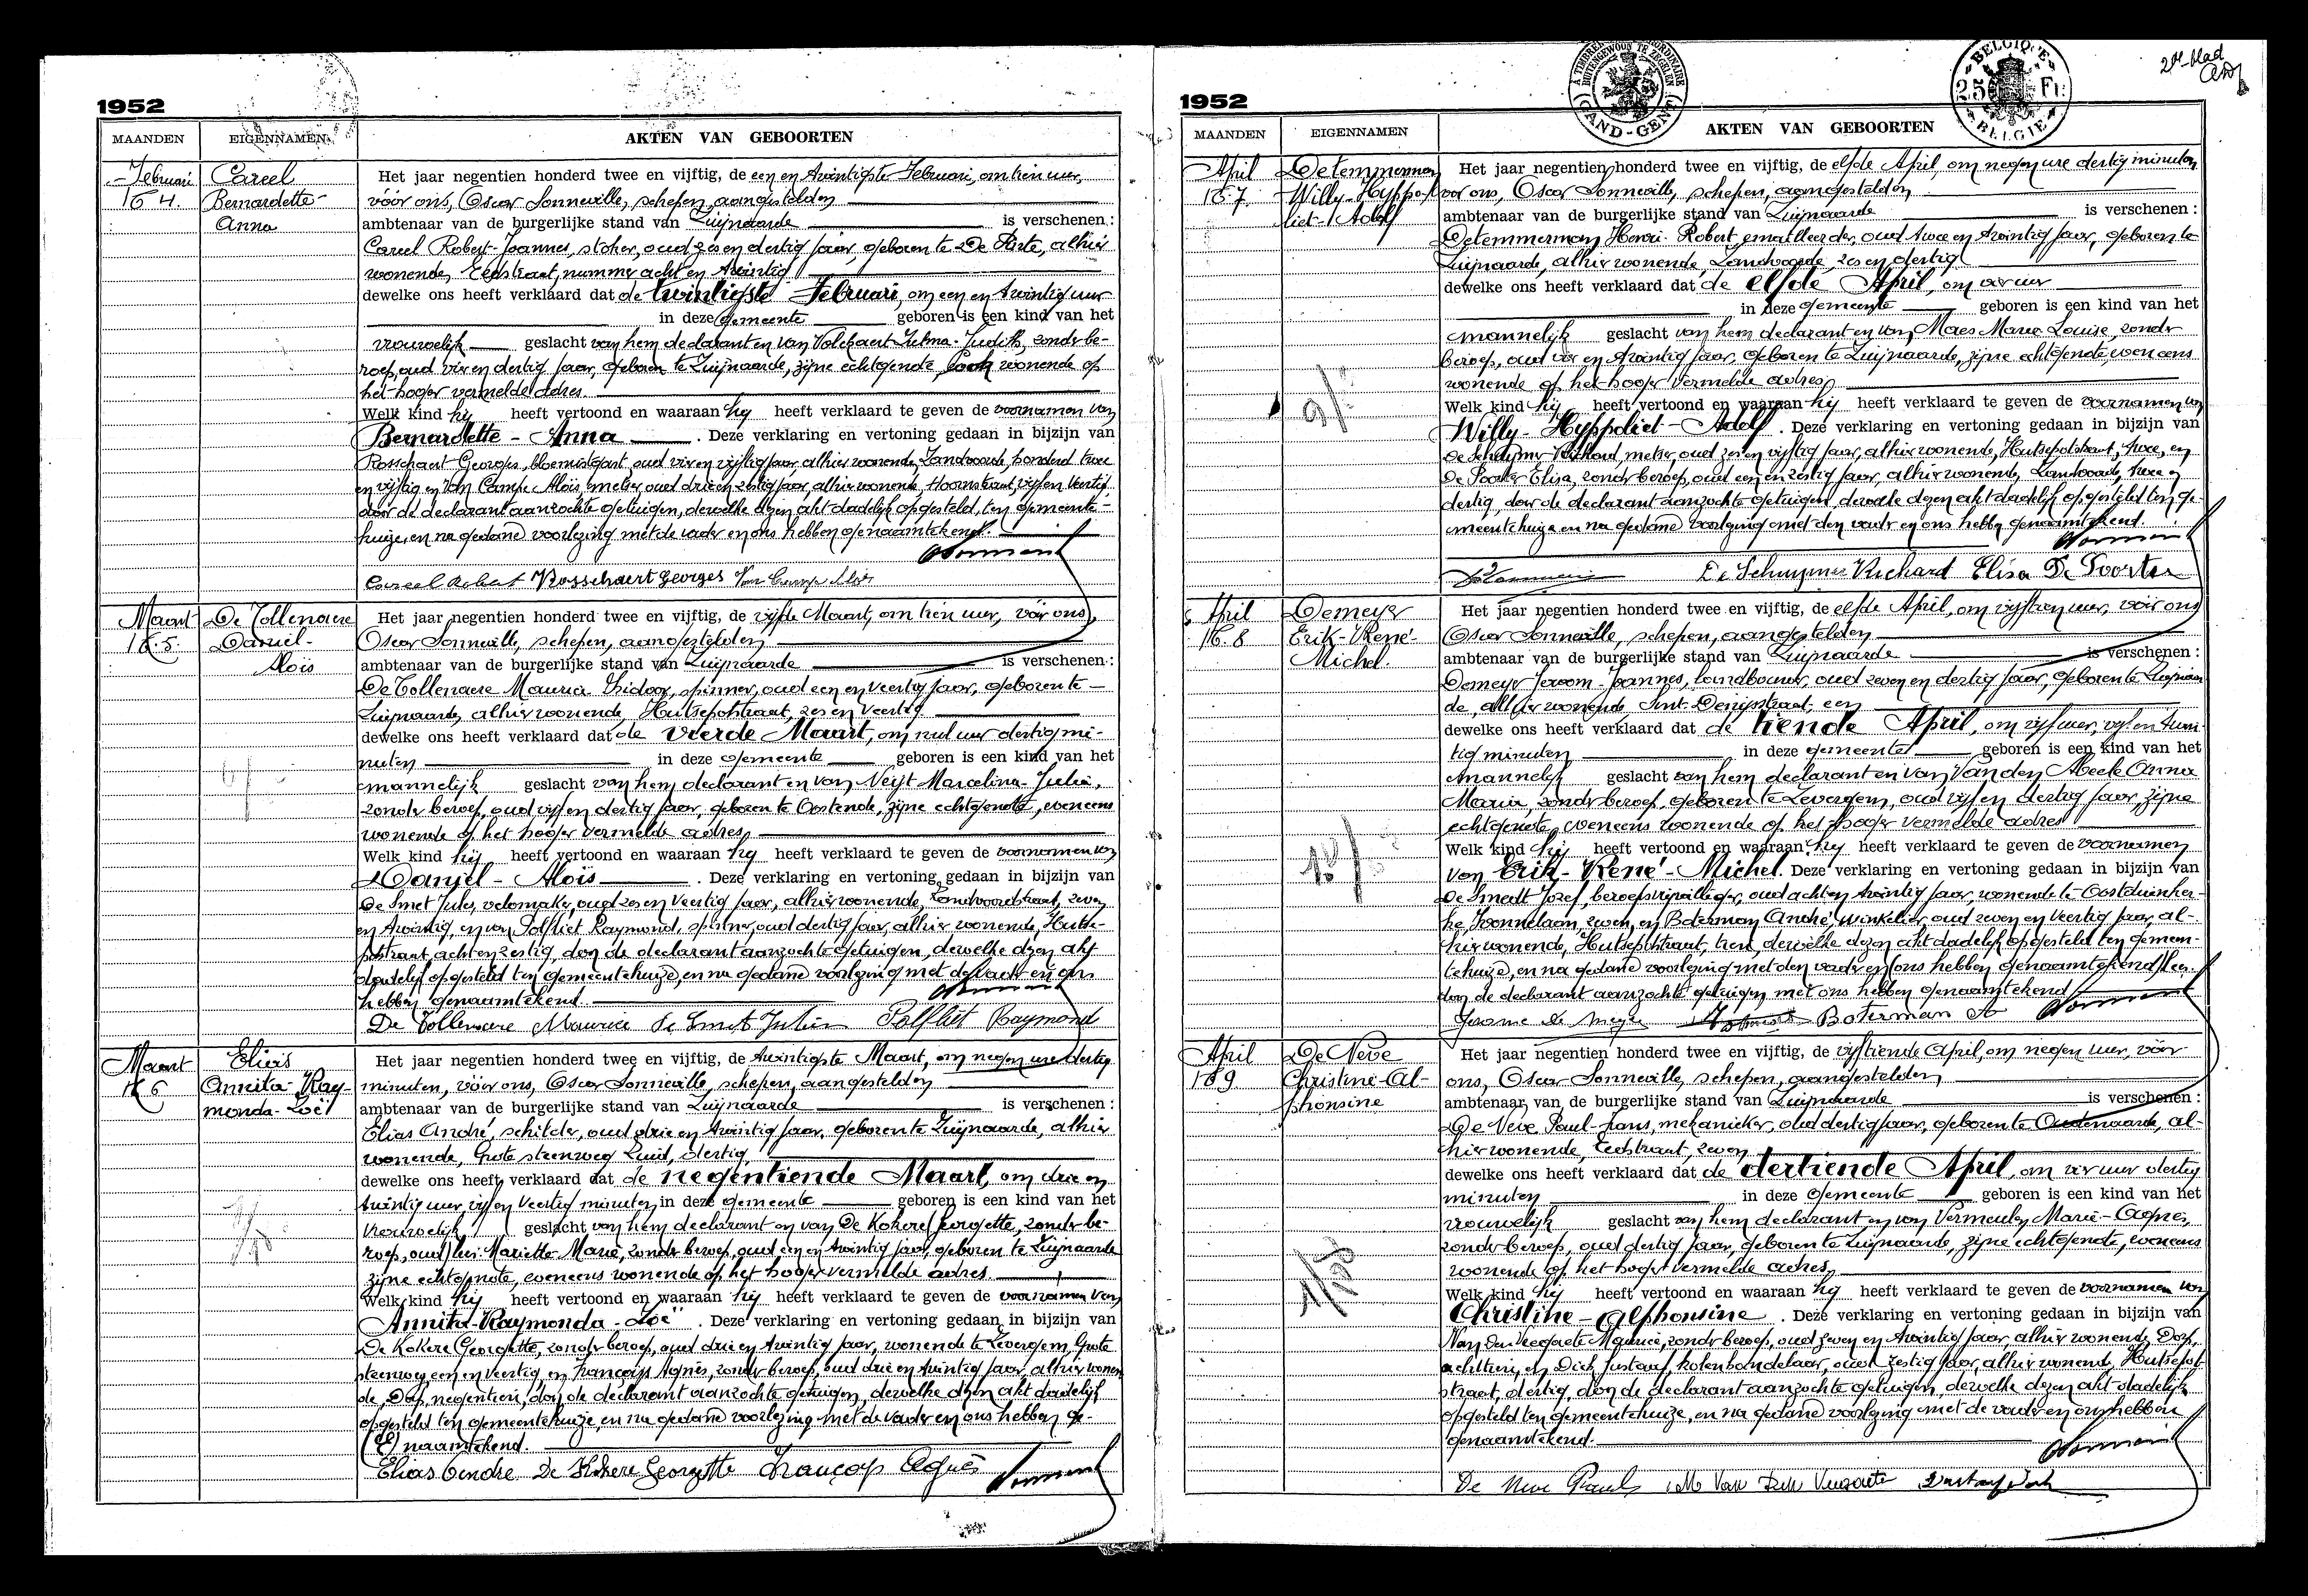 1952
MAANDEN
EIGENNAMEN
AKTEN VAN GEBOORTEN
Februari
Careel
Bernardette-
Anna
Het jaar negentien honderd twee en vijftig, de een en twintigste Februari, om tien uur,
vóór ons, Oscar Sonneville, schepen, aangestelden
ambtenaar van de burgerlijke stand van Zwijnaarde is verschenen :
Careel Robert-Joannes, stoker, oud zes en dertig jaar, geboren te De Pinte, alhier
wonende, Eedstraat, nummer acht en twintig
dewelke ons heeft verklaard dat de twintigste Februari, om een en twintig uur
in deze gemeente geboren is een kind van het
vrouwelijk geslacht van hem declarant en van Volckaert Zulma-Judith, zonder be-
roep, oud vier en dertig jaar, geboren te Zwijnaarde, zijne echtgenote, ook wonende op
het hoger vermelde adres.
Welk kind hij heeft vertoond en waaraan hij heeft verklaard te geven de voornamen van
Bernardette - Anna. Deze verklaring en vertoning gedaan in bijzijn van
Rosschaert Georges, bloemistgast, oud vier en vijftig jaar, alhier wonende, Zandvoorde, honderd twee
en vijftig en Van Campe Aloïs, metser, oud drie en zestig jaar, alhier wonende, Hoornstraat, vijf en veertig,
door de declarant aanzochte getuigen, dewelke dezen akt dadelijk opgesteld, ten gemeente-
huize, en na gedane voorlezing met de vader en ons hebben genaamtekend.
Careel Robert Rosschaert Georges Van Campe Aloïs
Maart
De Tollenaere
Daniël-
Aloïs
Het jaar negentien honderd twee en vijftig, de vijfde Maart, om tien uur, vóór ons,
Oscar Sonneville, schepen, aangestelden
ambtenaar van de burgerlijke stand van Zwijnaarde is verschenen :
De Tollenaere Maurice Izidoor, spinner, oud een en veertig jaar, geboren te
Zwijnaarde, alhier wonende, Hutsepotstraat, zes en veertig
dewelke ons heeft verklaard dat de vierde Maart, om nul uur dertig mi-
nuten in deze gemeente geboren is een kind van het
mannelijk geslacht van hem declarant en van Neyt Marcelina-Julia,
zonder beroep, oud vijf en dertig jaar, geboren te Oostende, zijne echtgenote, eveneens
wonende op het hoger vermelde adres,
Welk kind hij heeft vertoond en waaraan hij heeft verklaard te geven de voornamen van
Daniël - Aloïs. Deze verklaring en vertoning gedaan in bijzijn van
De Smet Jules, velomaker, oud zes en veertig jaar, alhier wonende, Zandvoordestraat, zeven
en twintig, en van Polfliet Raymond, spinner, oud dertig jaar, alhier wonende, Hutse-
potstraat, acht en zestig, door de declarant aanzochte getuigen, dewelke dezen akt
dadelijk opgesteld ten gemeentehuize, en na gedane voorlezing met de vader en ons
hebben genaamtekend.
De Tollenaere Maurice De Smet Julien Polfliet Raymond
Maart
Elias
Annita-Ray-
monda-Zoë
Het jaar negentien honderd twee en vijftig, de twintigste Maart, om negen ure dertig
minuten, vóór ons, Oscar Sonneville, schepen, aangestelden
ambtenaar van de burgerlijke stand van Zwijnaarde is verschenen :
Elias André, schilder, oud drie en twintig jaar, geboren te Zwijnaarde, alhier
wonende, Grote steenweg Zuid, dertig
dewelke ons heeft verklaard dat de negentiende Maart, om drie en
twintig uur vijf en veertig minuten, in deze gemeente geboren is een kind van het
vrouwelijk geslacht van hem declarant en van De Kokere Georgette, zonder be-
roep, oud Mariette Marie, zonder beroep, oud een en twintig jaar, geboren te Zwijnaarde
zijne echtgenote, eveneens wonende op het hoger vermelde adres.
Welk kind hij heeft vertoond en waaraan hij heeft verklaard te geven de voornamen van
Annita-Raymonda-Zoë. Deze verklaring en vertoning gedaan in bijzijn van
De Kokere Georgette, zonder beroep, oud drie en twintig jaar, wonende te Zevergem, Grote
steenweg een en veertig, en Françoijs Agnès, zonder beroep, oud drie en twintig jaar, alhier wonen-
de, Dorp, negentien, door de declarant aanzochte getuigen, dewelke dezen akt dadelijk
opgesteld ten gemeentehuize, en na gedane voorlezing met de vader en ons hebben ge-
(E) naamtekend.
Elias Andre De Kokere Georgette Françoijs Agnès
2de blad
A TIMBRER EXTRAORDINAIRE
BUITENGEWOON TE ZEGELEN
GAND-GENT
BELGIQUE
25 Fr
BELGIE
1952
MAANDEN
EIGENNAMEN
AKTEN VAN GEBOORTEN
April
Detemmerman
Willy-Hyppo-
liet-Adolf
Het jaar negentien honderd twee en vijftig, de elfde April, om negen ure dertig minuten
voor ons, Oscar Sonneville, schepen, aangestelden
ambtenaar van de burgerlijke stand van Zwijnaarde is verschenen :
Detemmerman Henri-Robert, emailleerder, oud twee en twintig jaar, geboren te
Zwijnaarde, alhier wonende, Zandvoorde, zes en dertig
dewelke ons heeft verklaard dat de elfde April, om vier uur
in deze gemeente geboren is een kind van het
mannelijk geslacht van hem declarant en van Maes Maria Louise, zonder
beroep, oud vier en twintig jaar, geboren te Zwijnaarde, zijne echtgenote, eveneens
wonende op het hoger vermelde adres,
Welk kind hij heeft vertoond en waaraan hij heeft verklaard te geven de voornamen van
Willy-Hyppoliet-Adolf. Deze verklaring en vertoning gedaan in bijzijn van
De Schuymer Richard, metser, oud zes en vijftig jaar, alhier wonende, Hutsepotstraat, twee, en
De Poorter Elisa, zonder beroep, oud een en zestig jaar, alhier wonende, Zandvoorde, twee en
dertig, door de declarant aanzochte getuigen, dewelke dezen akt dadelijk opgesteld ten ge-
meentehuize en na gedane voorlezing met den vader en ons hebben genaamtekend.
De Schuymer Richard Elisa De Poorter
April
168
Demeyer
Erik-René-
Michel.
Het jaar negentien honderd twee en vijftig, de elfde April, om vijftien uur, vóór ons
Oscar Sonneville, schepen, aangestelden
ambtenaar van de burgerlijke stand van Zwijnaarde is verschenen :
Demeyer Jeroom-Joannes, landbouwer, oud zeven en dertig jaar, geboren te Zwijnaar-
de, alhier wonende Sint-Denijsstraat, een
dewelke ons heeft verklaard dat de tiende April, om vijf uur, vijf en twin-
tig minuten in deze gemeente geboren is een kind van het
mannelijk geslacht van hem declarant en van Van den Abeele Anna
Maria, zonder beroep, geboren te Zevergem, oud vijf en dertig jaar, zijne
echtgenote, eveneens wonende op het hoger vermelde adres
Welk kind hij heeft vertoond en waaraan hij heeft verklaard te geven de voornamen
van Erik-René-Michel. Deze verklaring en vertoning gedaan in bijzijn van
De Smedt Jozef, beroepsvrijwilliger, oud acht en twintig jaar, wonende te Oostduinker-
ke, Ivonnelaan, zeven, en Boterman André, winkelier, oud zeven en veertig jaar, al-
hier wonende, Hutsepotstraat, tien, dewelke dezen akt dadelijk opgesteld ten gemeen-
tehuize, en na gedane voorlezing met den vader en (ons hebben genaamtekend)
door de declarant aanzochte getuigen met ons hebben genaamtekend
Jerome de Meyer Boterman A
April
169
De Neve
Christine-Al-
phonsine
Het jaar negentien honderd twee en vijftig, de vijftiende April, om negen uur, vóór
ons, Oscar Sonneville, schepen, aangestelden
ambtenaar van de burgerlijke stand van Zwijnaarde is verschenen :
De Neve Paul-Frans, mekanieker, oud dertig jaar, geboren te Oudenaarde, al-
hier wonende, Eedstraat, zeven
dewelke ons heeft verklaard dat de dertiende April, om vier uur dertig
minuten in deze gemeente geboren is een kind van het
vrouwelijk geslacht van hem declarant, en van Vermeulen Marie-Agnes,
zonder beroep, oud dertig jaar, geboren te Zwijnaarde, zijne echtgenote, eveneens
wonende op het hoger vermelde adres,
Welk kind hij heeft vertoond en waaraan hij heeft verklaard te geven de voornamen van
Christine-Alphonsine. Deze verklaring en vertoning gedaan in bijzijn van
Van Der Veegaete Maurice, zonder beroep, oud zeven en twintig jaar, alhier wonende, Dorp,
achttien, en Dick Gustaaf, kolenhandelaar, oud zestig jaar, alhier wonende, Hutsepot-
straat, dertig, door de declarant aanzochte getuigen, dewelke dezen akt dadelijk
opgesteld ten gemeentehuize, en na gedane voorlezing met de vader en ons hebben
genaamtekend.
De Neve Paul M Van Der Veegaete